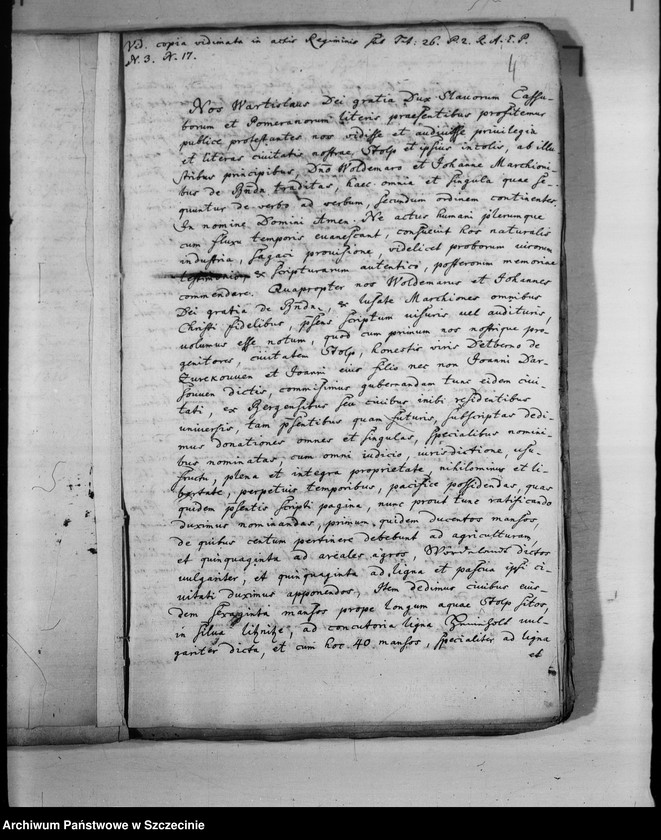 Vid. copia vidimata in actis Regiminis sub Tit: 26. P. 2. R. A. S. P.
N. 3. N. 17.
4
Nos Wartislaus Dei gratia Dux Slavorum Cassu-
borum et Pomeranorum literis praesentibus profitemur
publice protestantes nos vidisse et audivisse privilegia
et literas civitatis nostrae, Stolp et ipsius incolis, ab illu
stribus principibus, Dno Woldemaro et Johanne Marchioni-
bus de Brdn traditas, haec omnia et singula quae se-
quuntur de verbo ad verbum, secundum ordinem continentes.
In nomine Domini Amen. Ne actus humani plerumque
cum fluxu temporis evanescant, consuevit hos naturalis
industria, sagaci provisione, videlicet proborum virorum
testimonio, ex scripturarum autentico, posterorum memoriae
commendare. Quapropter nos Woldemarus et Johannes
Dei gratia de Brdn, & Lusate Marchiones omnibus
Christi fidelibus, psens scriptum visuris vel audituris,
volumus esse notum, quod cum primum nos nostrique pro-
genitores, civitatem Stolp, honestis viris Detberno de
Zurekouven et Joanni eius filio nec non Joanni Dar-
souven dictis, commisimus gubernandam tunc eidem civi-
tati, ex Bergensibus seu civibus inibi residentibus
universis, tam psentibus quam futuris, subscriptas dedi-
mus donationes omnes et singulas, specialibus nomini-
bus nominatas, cum omni iudicio, iurisdictione, usu-
fructu, plena et integra proprietate, nihilominus et li-
bertate, perpetuis temporibus, pacifice possidendas, quas
quidem psentis scripti pagina, nunc prout tunc ratificando
duximus nominandas, primum quidem ducentos mansos,
de quibus centum pertinere debebunt ad agriculturam,
et quinquaginta ad areales agros, Wordelandt dictos
vulgariter, et quinquaginta ad ligna et pascua ipsi ci-
vitati duximus apponendos, Item dedimus civibus eius-
dem sexaginta mansos prope longum aquae Stolp sitos,
in silva litznitze, ad concutoria ligna vul-
gariter dicta, et cum hoc 40 mansos, specialiter ad ligna
et
Archiwum Państwowe w Szczecinie